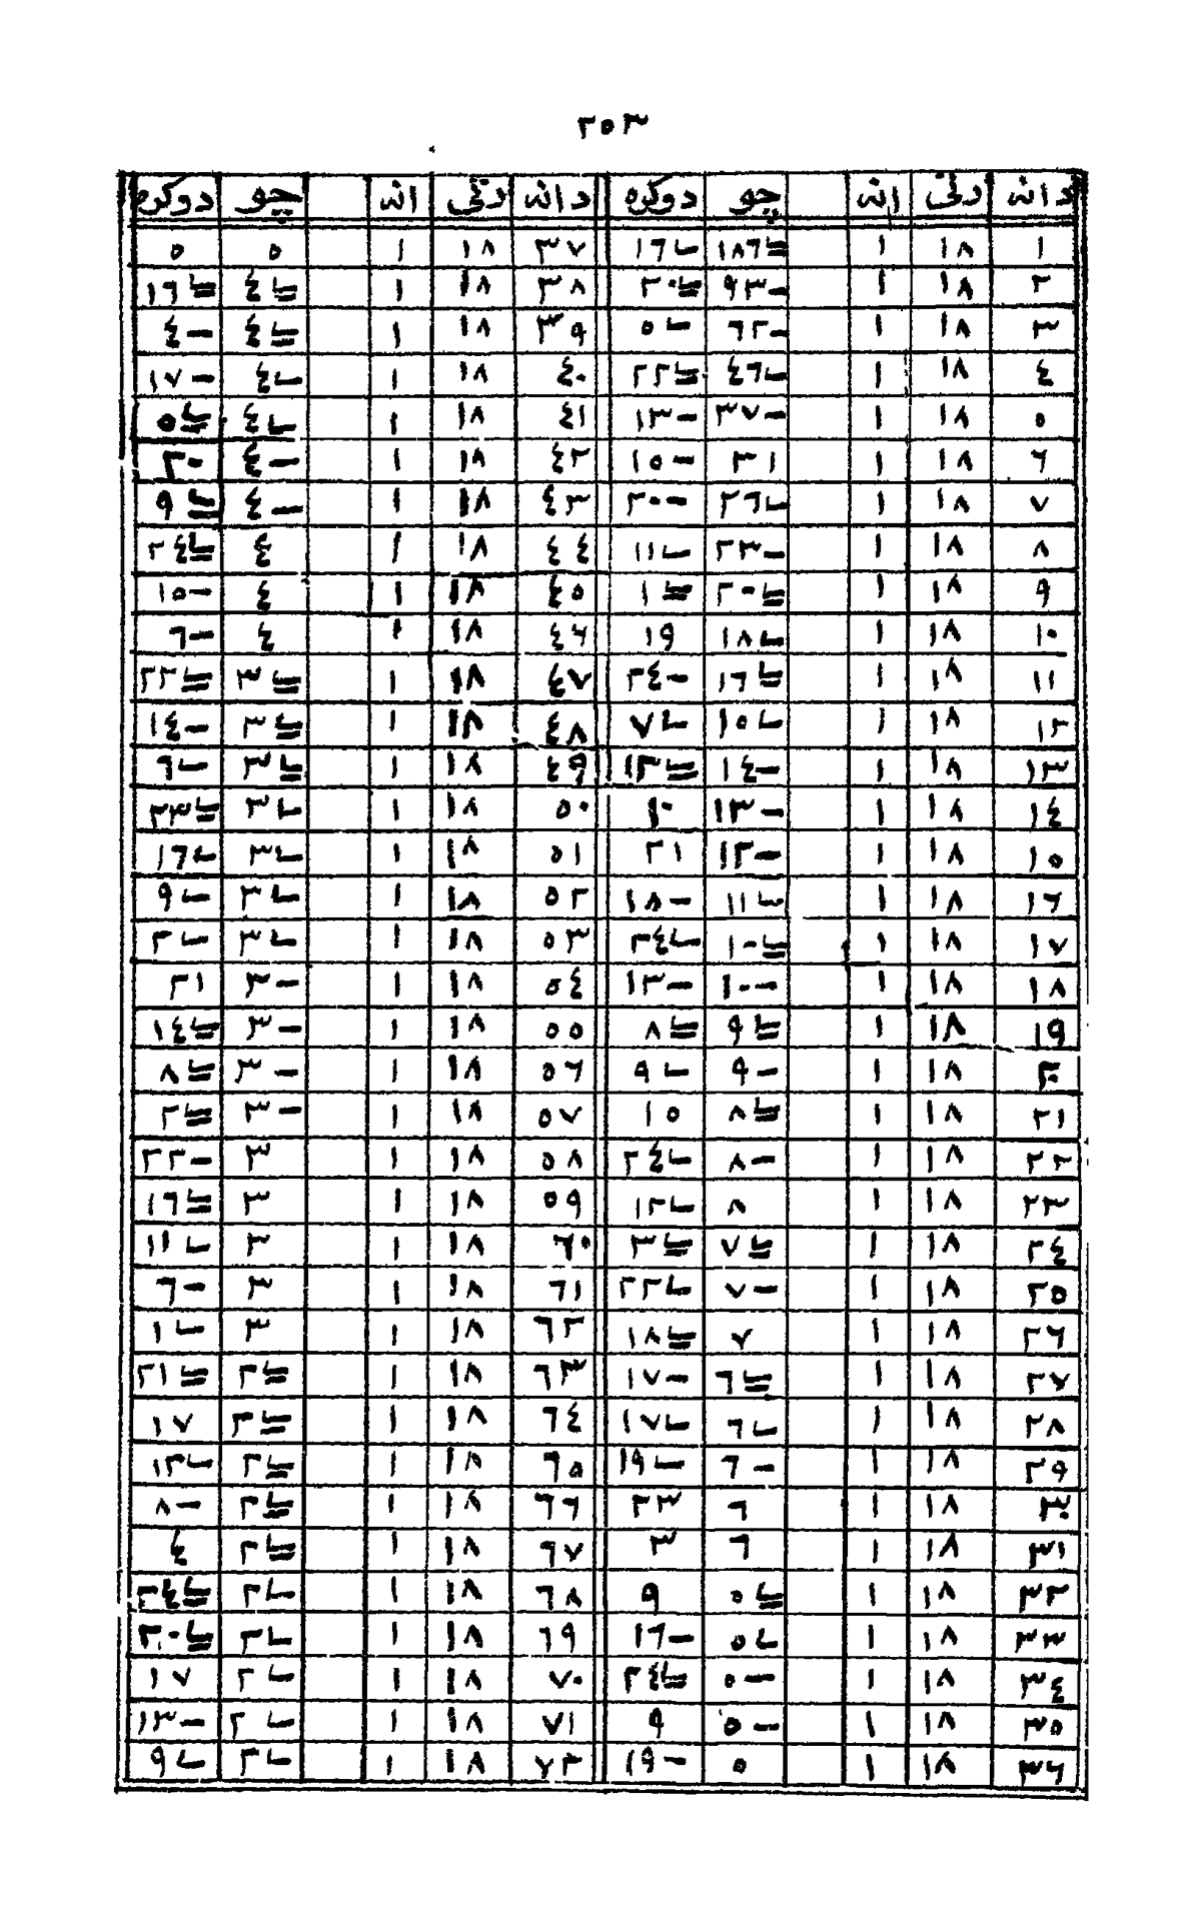 ٢٥٣
دانه رتي انه چو دوكره دانه رتي انه چو دوكره
١ ١٨ ١ ١٨٦ـا= ١٦ـا ٣٧ ١٨ ١ ٥ ٥
٢ ١٨ ١ ٩٣- ٢٠ـا= ٣٨ ١٨ ١ ٤ـا= ١٦ـا=
٣ ١٨ ١ ٦٢- ٥ـا ٣٩ ١٨ ١ ٤ـا= ٤-
٤ ١٨ ١ ٤٦ـا ٢٢ـا= ٤٠ ١٨ ١ ٤ـا ١٧-
٥ ١٨ ١ ٣٧- ١٣- ٤١ ١٨ ١ ٤ـا ٥ـا=
٦ ١٨ ١ ٣١ ١٥- ٤٢ ١٨ ١ ٤- ٢٠-
٧ ١٨ ١ ٢٦ـا ٢٠- ٤٣ ١٨ ١ ٤- ٩ـا=
٨ ١٨ ١ ٢٣- ١١ـا ٤٤ ١٨ ١ ٤ ٢٤ـا=
٩ ١٨ ١ ٢٠ـا= ١ـا= ٤٥ ١٨ ١ ٤ ١٥-
١٠ ١٨ ١ ١٨ـا ١٩ ٤٦ ١٨ ١ ٤ ٦-
١١ ١٨ ١ ١٦ـا= ٢٤- ٤٧ ١٨ ١ ٣ـا= ٢٢ـا=
١٢ ١٨ ١ ١٥ـا ٧ـا ٤٨ ١٨ ١ ٣ـا= ١٤-
١٣ ١٨ ١ ١٤- ١٢ـا= ٤٩ ١٨ ١ ٣ـا= ٦ـا
١٤ ١٨ ١ ١٣- ١٠ ٥٠ ١٨ ١ ٣ـا ٢٣ـا=
١٥ ١٨ ١ ١٢- ٢١ ٥١ ١٨ ١ ٣ـا ١٦ـا
١٦ ١٨ ١ ١١ـا ١٨- ٥٢ ١٨ ١ ٣ـا ٩ـا
١٧ ١٨ ١ ١٠ـا= ٢٤ـا ٥٣ ١٨ ١ ٣ـا ٢ـا
١٨ ١٨ ١ ١٠- ١٣- ٥٤ ١٨ ١ ٣- ٢١
١٩ ١٨ ١ ٩ـا= ٨ـا= ٥٥ ١٨ ١ ٣- ١٤ـا=
٢٠ ١٨ ١ ٩- ٩ـا ٥٦ ١٨ ١ ٣- ٨ـا=
٢١ ١٨ ١ ٨ـا= ١٥ ٥٧ ١٨ ١ ٣- ٢ـا=
٢٢ ١٨ ١ ٨- ٢٤ـا ٥٨ ١٨ ١ ٣ ٢٢-
٢٣ ١٨ ١ ٨ ١٢ـا ٥٩ ١٨ ١ ٣ ١٦ـا=
٢٤ ١٨ ١ ٧ـا= ٣ـا= ٦٠ ١٨ ١ ٣ ١١ـا
٢٥ ١٨ ١ ٧- ٢٢ـا ٦١ ١٨ ١ ٣ ٦-
٢٦ ١٨ ١ ٧ ١٨ـا= ٦٢ ١٨ ١ ٣ ١ـا
٢٧ ١٨ ١ ٦ـا= ١٧- ٦٣ ١٨ ١ ٢ـا= ٢١ـا=
٢٨ ١٨ ١ ٦ـا ١٧ـا ٦٤ ١٨ ١ ٢ـا= ١٧
٢٩ ١٨ ١ ٦- ١٩ـا ٦٥ ١٨ ١ ٢ـا= ١٢ـا
٣٠ ١٨ ١ ٦ ٢٣ ٦٦ ١٨ ١ ٢ـا= ٨-
٣١ ١٨ ١ ٦ ٣ ٦٧ ١٨ ١ ٢ـا= ٤
٣٢ ١٨ ١ ٥ـا= ٩ ٦٨ ١٨ ١ ٢ـا ٢٤ـا=
٣٣ ١٨ ١ ٥ـا ١٦- ٦٩ ١٨ ١ ٢ـا ٢٠ـا=
٣٤ ١٨ ١ ٥- ٢٤ـا= ٧٠ ١٨ ١ ٢ـا ١٧
٣٥ ١٨ ١ ٥- ٩ ٧١ ١٨ ١ ٢ـا ١٣-
٣٦ ١٨ ١ ٥ ١٩- ٧٢ ١٨ ١ ٢ـا ٩ـا